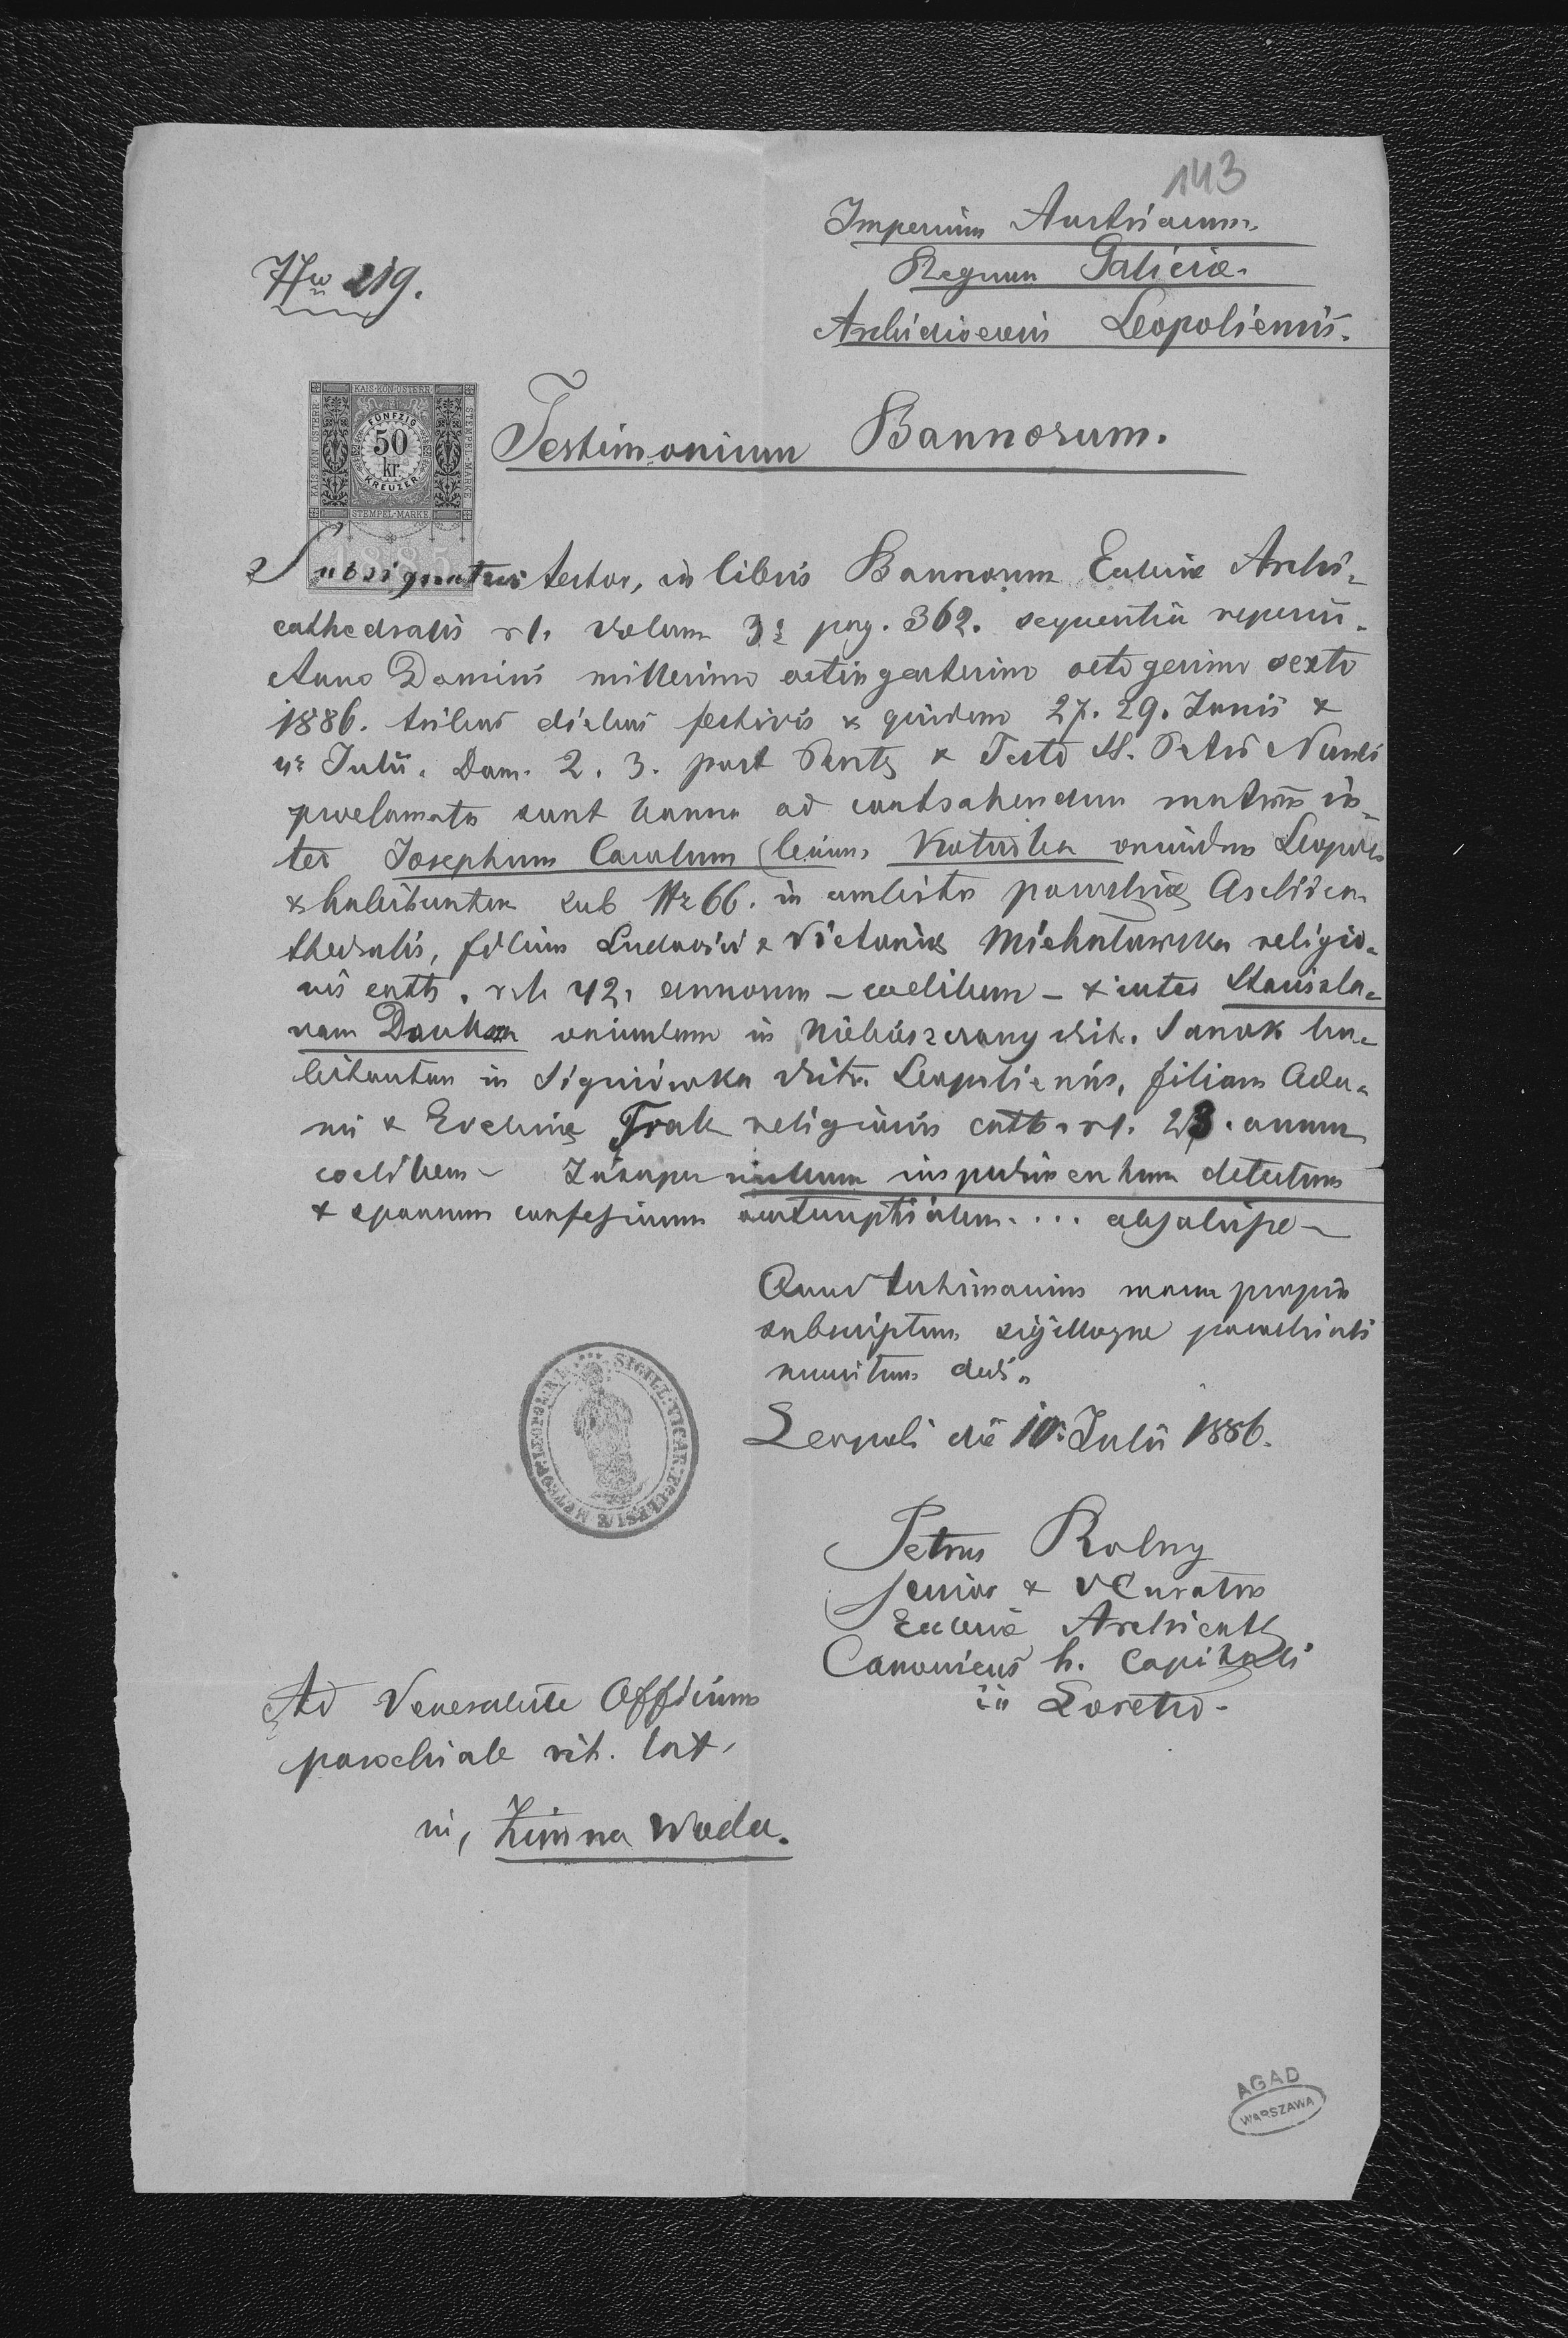 143
Imperium Austriacum.
Regnum Galiciæ.
Archidioecesis Leopoliensis.
Nro 219.
KAIS·KÖN·ÖSTERR·
STEMPEL-MARKE
FÜNFZIG
50
kr.
KREUZER
1885
Testimonium Bannorum.
Subsignatus testor, in libris Bannorum Eccleriæ Archi-
cathedralis r. l. Volum 3º pag. 362. sequentia reperiri.
Anno Domini millesimo octingentesimo octogesimo sexto
1886. tribus diebus festivis & quidem 27. 29. Junii &
4º Julii. Dom. 2. 3. post Pents & Festo SS. Petri & Pauli
proclamata sunt banna ad contrahendum matrim in-
ter Josephum Carolum oriundum Leopoli
& habitantem sub Nr 66. in ambitu parochiæ Archica-
thedralis, filium Ludovici & Victoriæ Michałowska religio-
nis cath. r. l. 42. annorum – coelibem – & inter Stanisla-
vam oriundam in Niebieszczany distr. Sanok ha-
bitantem in Signiówka distr. Leopoliensis, filiam Ada-
mi & Evelinæ Trale religionis cath. r. l. 23. annum
coelibem – Insuper nullum impedimentum detectum
& sponsum confessionem .... absolvisse –
Quod testimonium manu propria
subscriptum sigilloque parochiali
munitum dedi.
Leopoli die 10. Julii 1886.
SIGILL: VICAR: ECCLESIÆ METROP: LEOPOL: R: L:
Petrus Rolny
senior & VCurator
Eccleriæ Archicath
Canonicus h. Capituli
in Loreto –
Ad Venerabile Officium
parochiale rit. lat.
in, Zimna Woda.
AGAD
WARSZAWA